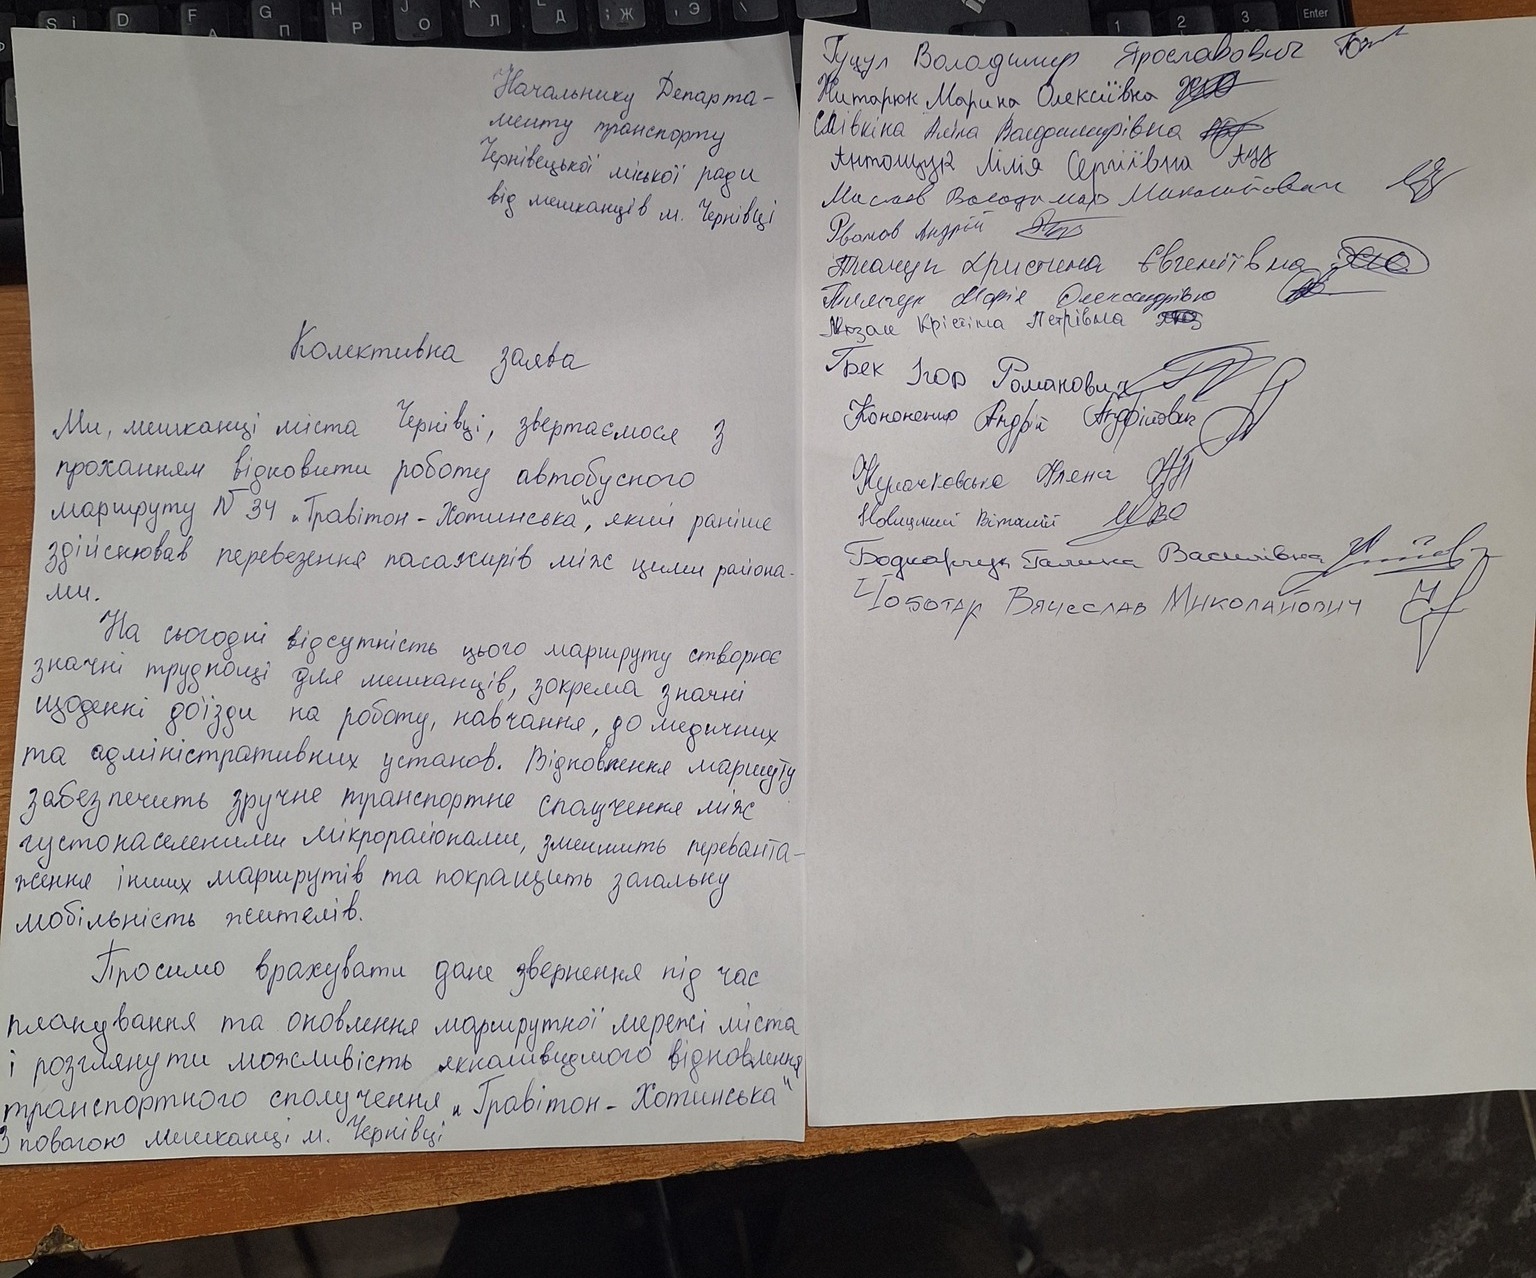 Начальнику Департа-
менту транспорту
Чернівецької міської ради
від мешканців м. Чернівці
Колективна заява
Ми, мешканці міста Чернівці, звертаємося з
проханням відновити роботу автобусного
маршруту № 34 „Гравітон - Хотинська", який раніше
здійснював перевезення пасажирів між цими района-
ми.
На сьогодні відсутність цього маршруту створює
значні труднощі для мешканців, зокрема значні
щоденні доїзди на роботу, навчання, до медичних
та адміністративних установ. Відновлення маршуту
забезпечить зручне транспортне сполучення між
густонаселеними мікрорайонами, зменшить переванта-
ження інших маршрутів та покращить загальну
мобільність жителів.
Просимо врахувати дане звернення під час
планування та оновлення маршрутної мережі міста
і розглянути можливість якнайшвидшого відновлення
транспортного сполучення „Гравітон - Хотинська"
З повагою мешканці м. Чернівці
Гуцул Володимир Ярославович
Житарюк Марина Олексіївна
Співкіна Аліна Володимирівна
Антощук Лілія Сергіївна
Володимир Миколайович
Андрій
Ткачук Христина Євгеніївна
Марія Олександрівна
Крістіна Петрівна
Грек Ігор Романович
Кононенко Андрій Андрійович
Алена
Новицький Віталій
Боднарчук Галина Василівна
Чоботар Вячеслав Миколайович
S i
D
F
G
H
J
K
L
А
П
Р
О
Л
Д
Ж
Э
1
2
3
Enter